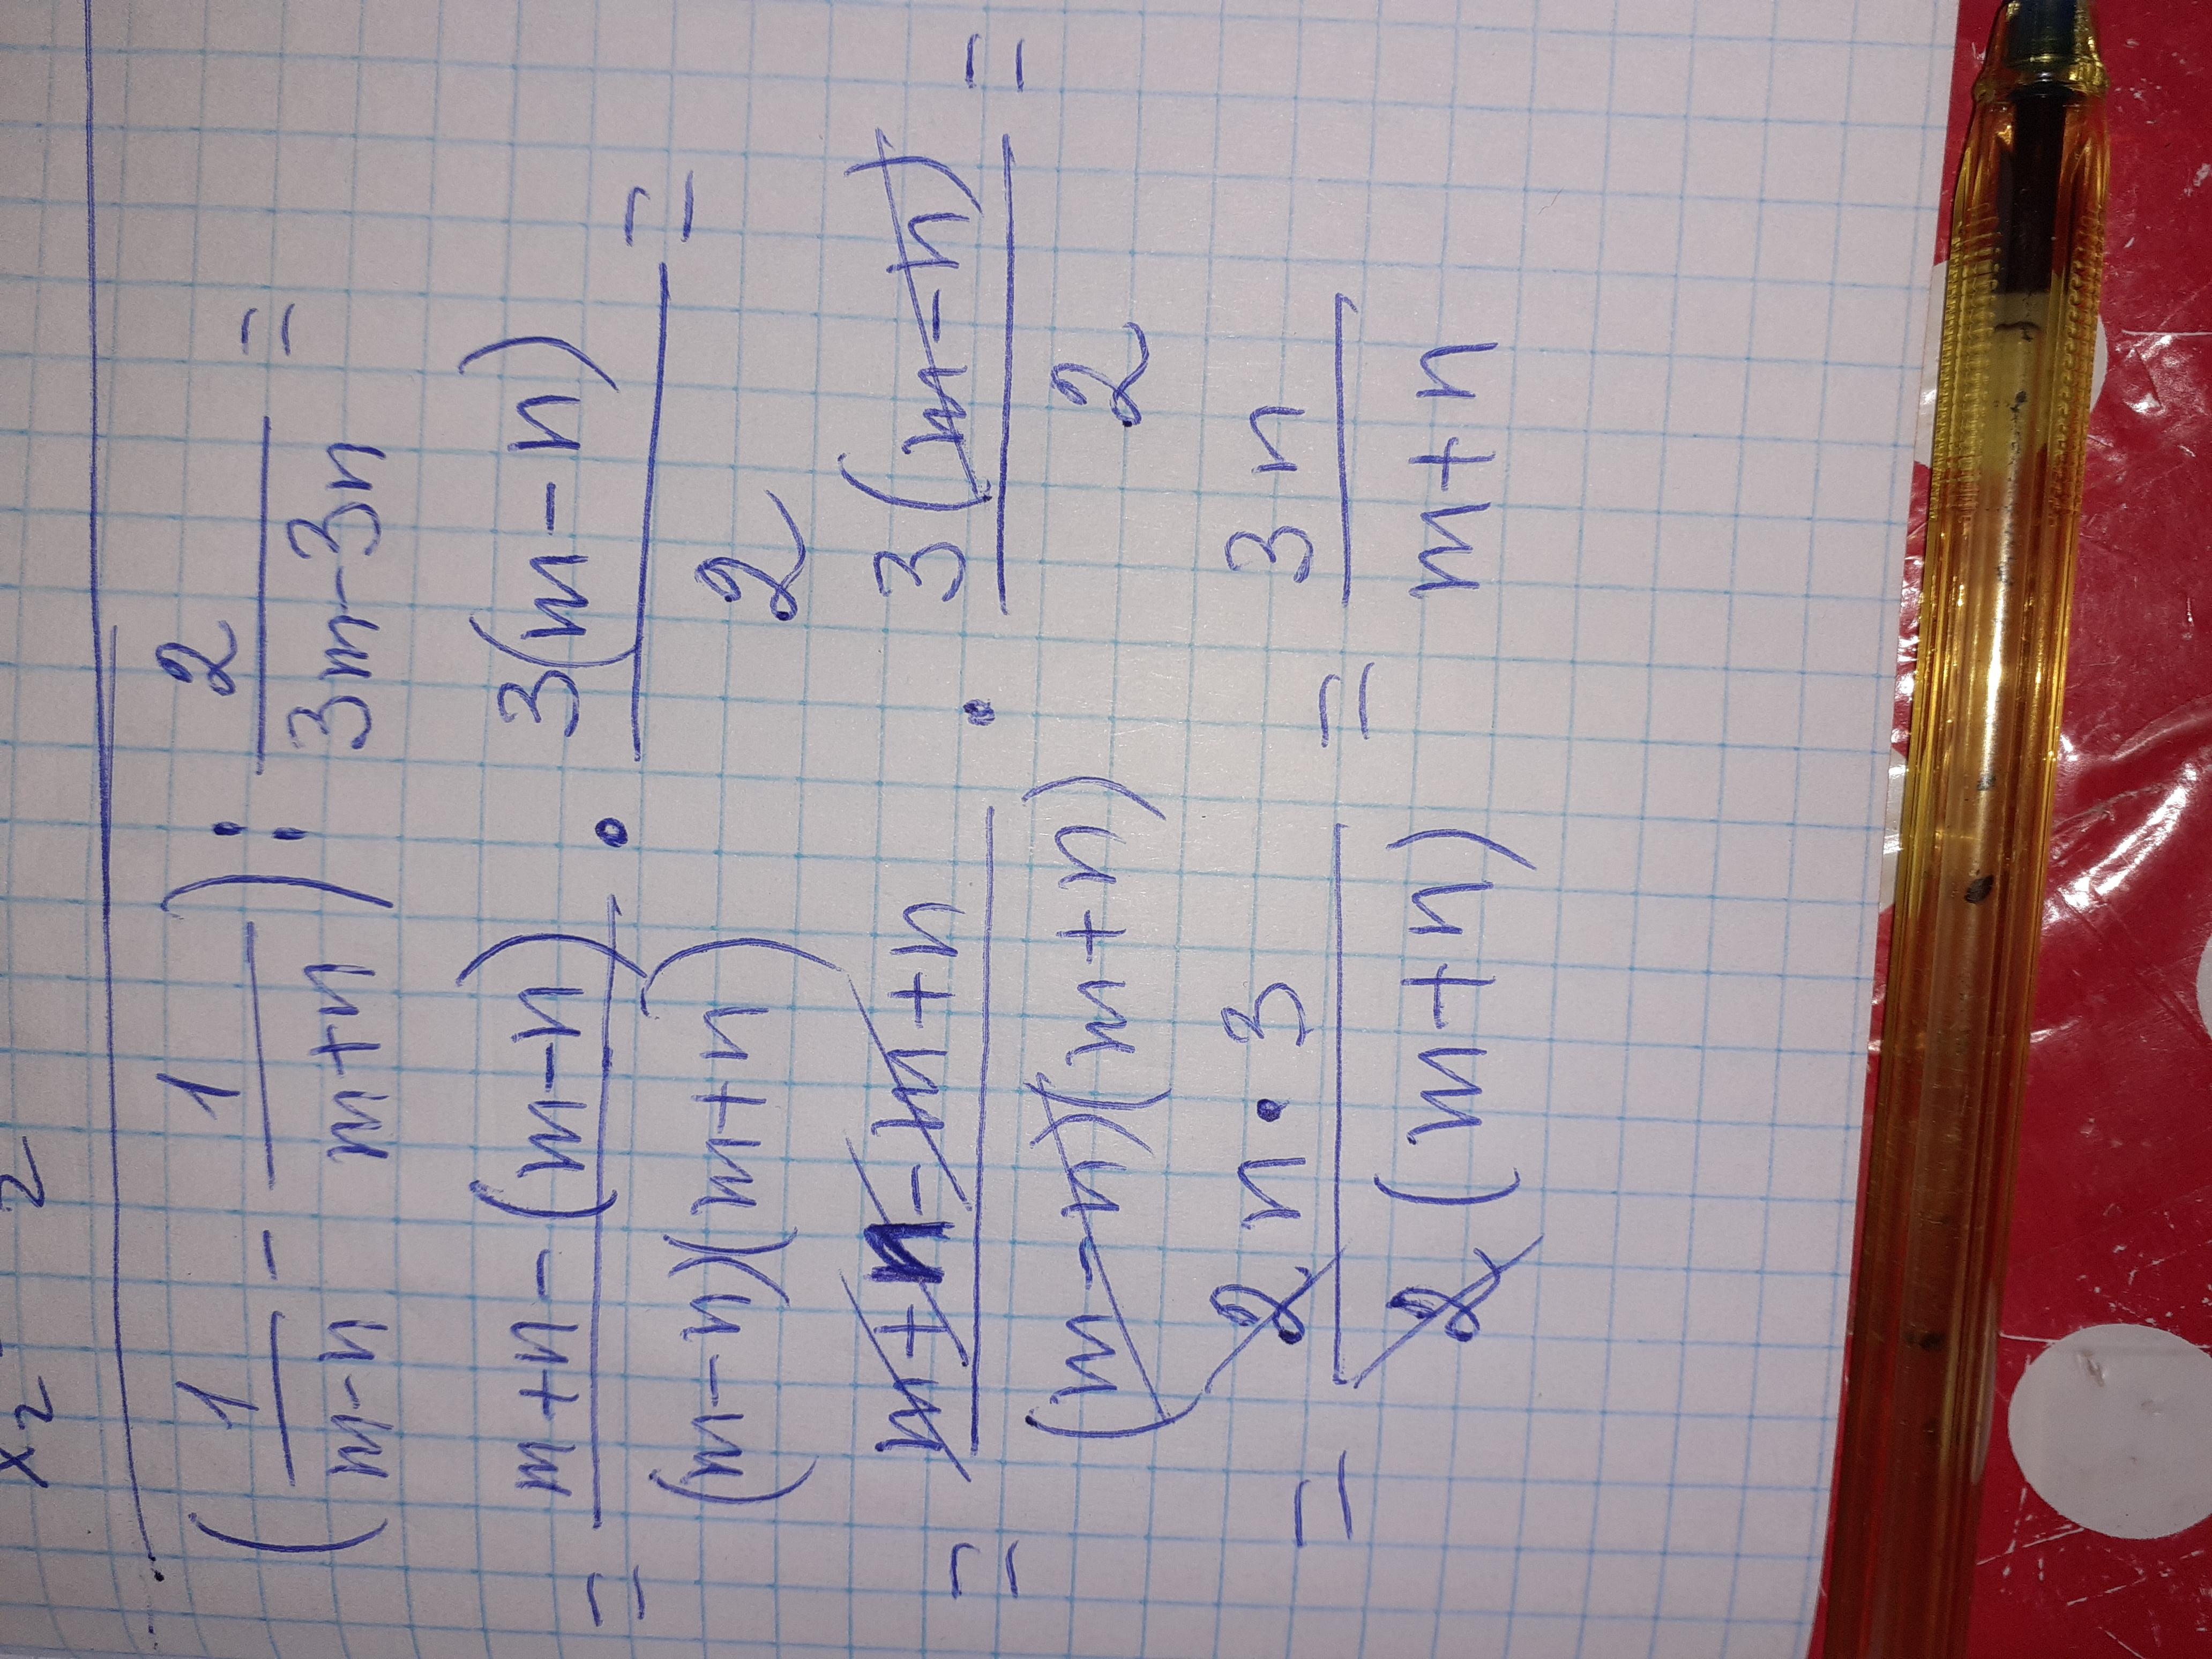 x₂ 2
(1/(m-n) - 1/(m+n)) : 2/(3m-3n) =
= (m+n-(m-n))/((m-n)(m+n)) · 3(m-n)/2 =
= (m+n-m+n)/((m-n)(m+n)) · 3(m-n)/2 =
= (2n·3)/(2(m+n)) = 3n/(m+n)